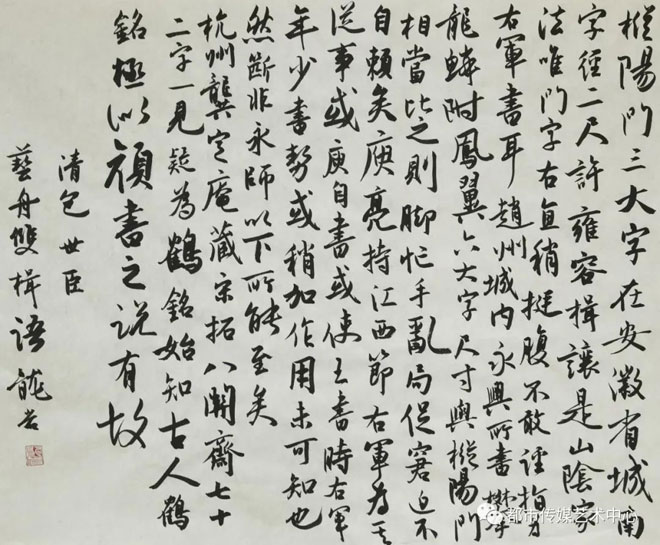 樅陽門三大字在安徽省城南
字徑二尺許雍容揖讓是山陰家
法唯門字右直稍挺腹不敢徑指為
右軍書耳趙州城內永興所書攀
龍鱗附鳳翼六大字尺寸與樅陽門
相當比之則腳忙手亂局促窘迫不
自賴矣庾亮持江西節右軍為其
從事或庾自書或使王書時右軍
年少書勢或稍加作用未可知也
然斷非永師以下所能至矣
杭州龔定庵藏宋拓八關齋七十
二字一見疑為鶴銘始知古人鶴
銘極似顏書之說有故
清包世臣
藝舟雙楫語
都市传媒艺术中心